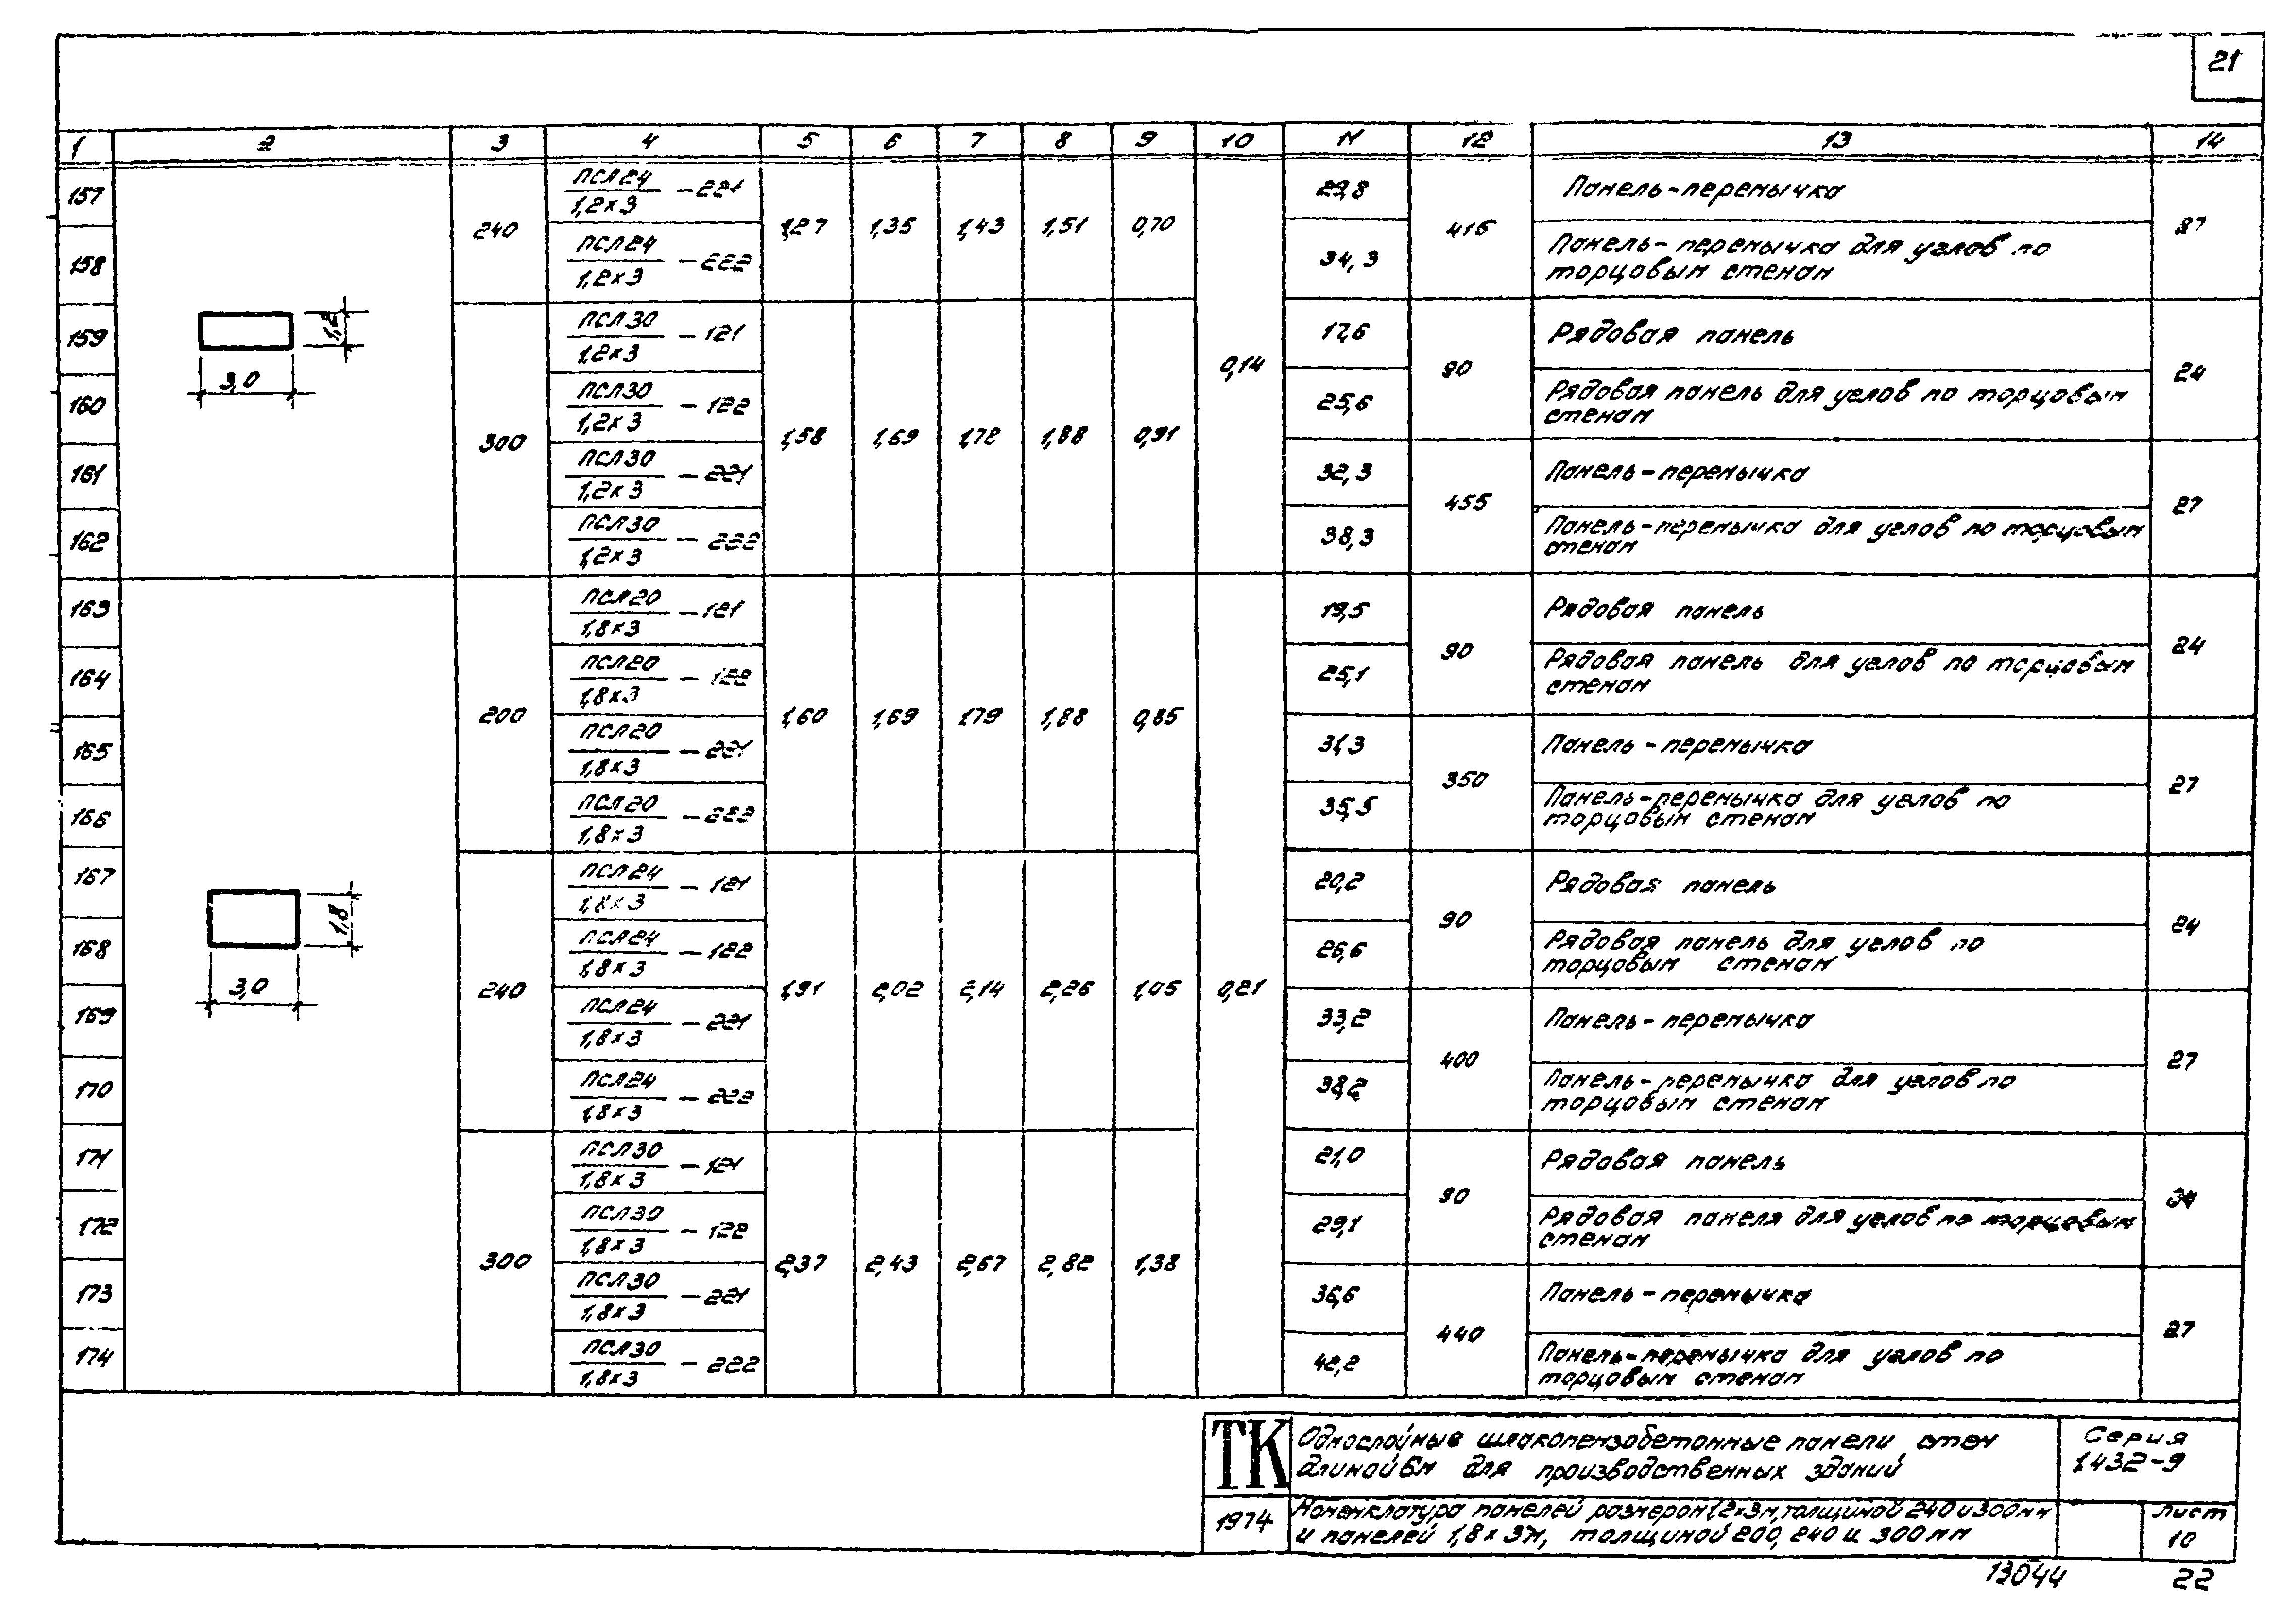 21
1 2 3 4 5 6 7 8 9 10 11 12 13 14
157 240 ПСЛ24/1,2×3 -221 1,27 1,35 1,43 1,51 0,70 0,14 29,8 416 Панель-перемычка 27
158 ПСЛ24/1,2×3 -222 34,3 Панель-перемычка для углов по
торцовым стенам
1,2
3,0
159 300 ПСЛ30/1,2×3 -121 1,58 1,69 1,78 1,88 0,91 17,6 90 Рядовая панель 24
160 ПСЛ30/1,2×3 -122 25,6 Рядовая панель для углов по торцовым
стенам
161 ПСЛ30/1,2×3 -221 32,3 455 Панель-перемычка 27
162 ПСЛ30/1,2×3 -222 38,3 Панель-перемычка для углов по торцовым
стенам
163 200 ПСЛ20/1,8×3 -121 1,60 1,69 1,79 1,88 0,85 0,21 19,5 90 Рядовая панель 24
164 ПСЛ20/1,8×3 -122 25,1 Рядовая панель для углов по торцовым
стенам
165 ПСЛ20/1,8×3 -221 31,3 350 Панель-перемычка 27
166 ПСЛ20/1,8×3 -222 35,5 Панель-перемычка для углов по
торцовым стенам
1,8
3,0
167 240 ПСЛ24/1,8×3 -121 1,91 2,02 2,14 2,26 1,05 20,2 90 Рядовая панель 24
168 ПСЛ24/1,8×3 -122 26,6 Рядовая панель для углов по
торцовым стенам
169 ПСЛ24/1,8×3 -221 33,2 400 Панель-перемычка 27
170 ПСЛ24/1,8×3 -222 38,2 Панель-перемычка для углов по
торцовым стенам
171 300 ПСЛ30/1,8×3 -121 2,37 2,43 2,67 2,82 1,38 21,0 90 Рядовая панель
172 ПСЛ30/1,8×3 -122 29,1 Рядовая панеля для углов по торцовым
стенам
173 ПСЛ30/1,8×3 -221 36,6 440 Панель-перемычка 27
174 ПСЛ30/1,8×3 -222 42,2 Панель-перемычка для углов по
торцовым стенам
ТК
Однослойные шлакопензобетонные панели стен
длиной 6м для производственных зданий
Серия
1.432-9
1974
Номенклатура панелей размером 1,2×3м, толщиной 240 и 300мм
и панелей 1,8×3м, толщиной 200, 240 и 300мм
лист
10
13044 22